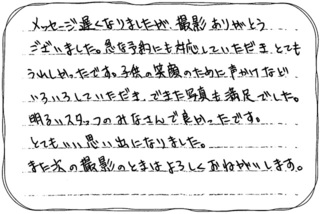 メッセージ遅くなりましたが、撮影ありがとう
ございました。急な予約にも対応していただき、とても
うれしかったです。子供の笑顔のために声かけなど
いろいろしていただき、できた写真も満足でした。
明るいスタッフのみなさんで良かったです。
とてもいい思い出になりました。
また次の撮影のときはよろしくおねがいします。